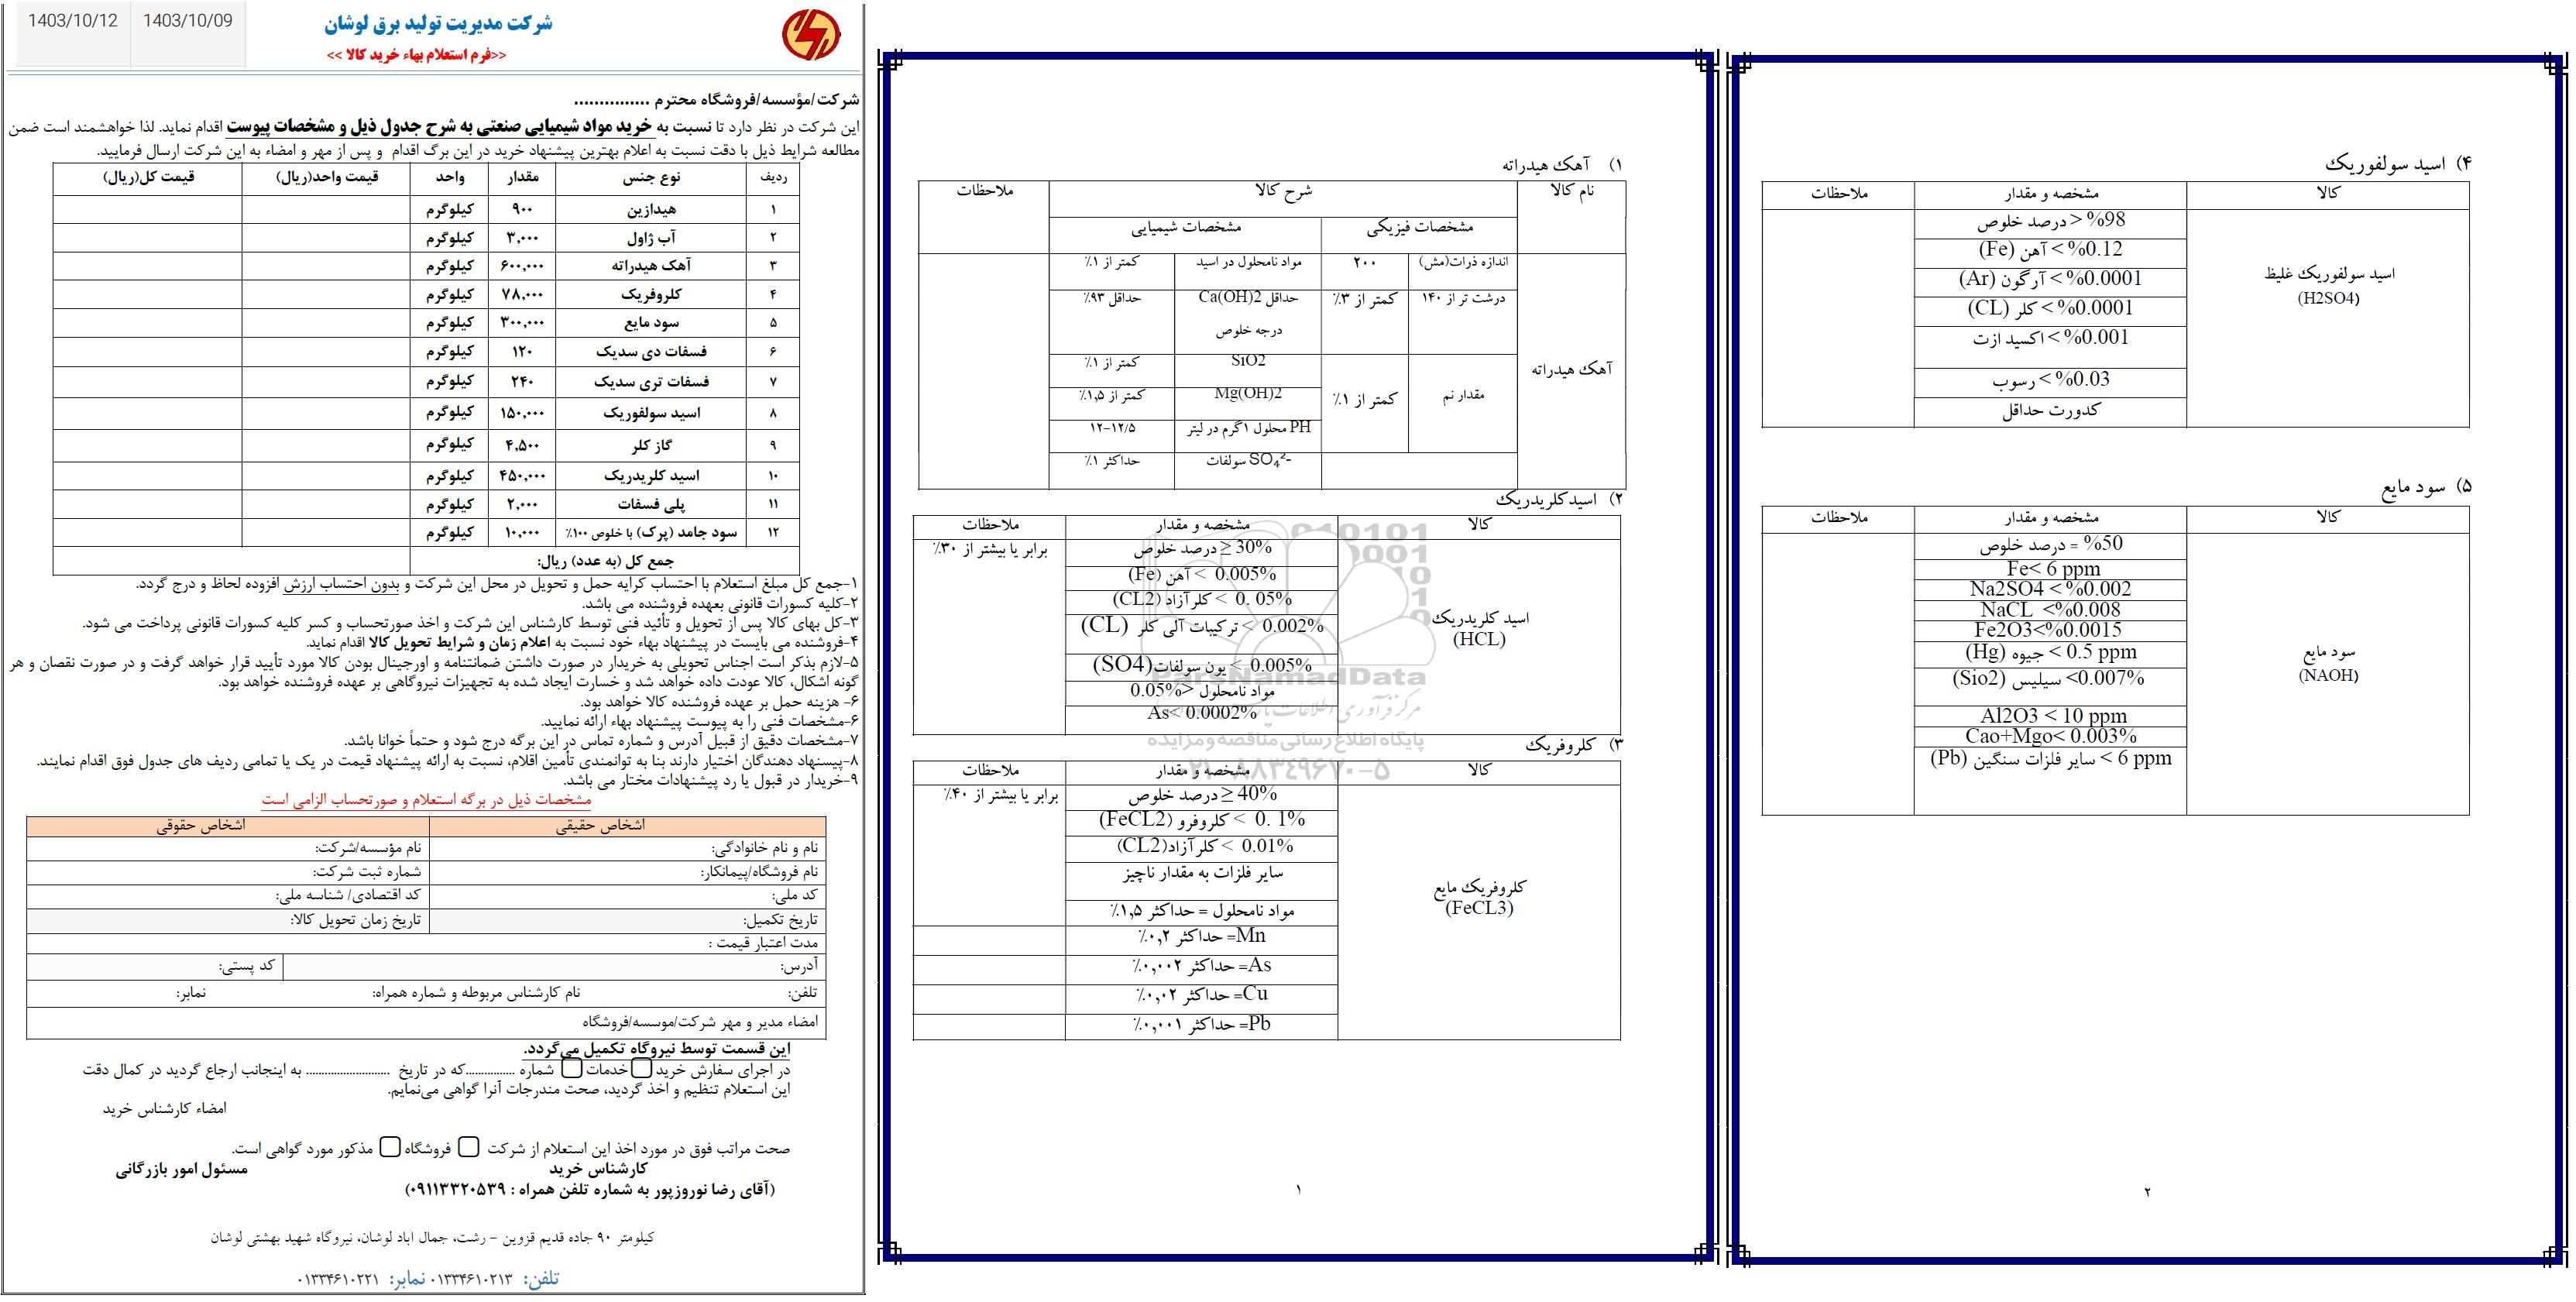 1403/10/12
1403/10/09
شرکت مدیریت تولید برق لوشان
<<فرم استعلام بهاء خرید کالا >>
شرکت/مؤسسه/فروشگاه محترم ...............
این شرکت در نظر دارد تا نسبت به خرید مواد شیمیایی صنعتی به شرح جدول ذیل و مشخصات پیوست اقدام نماید. لذا خواهشمند است ضمن
مطالعه شرایط ذیل با دقت نسبت به اعلام بهترین پیشنهاد خرید در این برگ اقدام و پس از مهر و امضاء به این شرکت ارسال فرمایید.
ردیف نوع جنس مقدار واحد قیمت واحد(ریال) قیمت کل(ریال)
۱ هیدازین ۹۰۰ کیلوگرم
۲ آب ژاول ۳,۰۰۰ کیلوگرم
۳ آهک هیدراته ۶۰۰,۰۰۰ کیلوگرم
۴ کلروفریک ۷۸,۰۰۰ کیلوگرم
۵ سود مایع ۳۰۰,۰۰۰ کیلوگرم
۶ فسفات دی سدیک ۱۲۰ کیلوگرم
۷ فسفات تری سدیک ۲۴۰ کیلوگرم
۸ اسید سولفوریک ۱۵۰,۰۰۰ کیلوگرم
۹ گاز کلر ۴,۵۰۰ کیلوگرم
۱۰ اسید کلریدریک ۴۵۰,۰۰۰ کیلوگرم
۱۱ پلی فسفات ۲,۰۰۰ کیلوگرم
۱۲ سود جامد (پرک) با خلوص ۱۰۰٪ ۱۰,۰۰۰ کیلوگرم
جمع کل (به عدد) ریال:
۱-جمع کل مبلغ استعلام با احتساب کرایه حمل و تحویل در محل این شرکت و بدون احتساب ارزش افزوده لحاظ و درج گردد.
۲-کلیه کسورات قانونی بعهده فروشنده می باشد.
۳-کل بهای کالا پس از تحویل و تأئید فنی توسط کارشناس این شرکت و اخذ صورتحساب و کسر کلیه کسورات قانونی پرداخت می شود.
۴-فروشنده می بایست در پیشنهاد بهاء خود نسبت به اعلام زمان و شرایط تحویل کالا اقدام نماید.
۵-لازم بذکر است اجناس تحویلی به خریدار در صورت داشتن ضمانتنامه و اورجینال بودن کالا مورد تأیید قرار خواهد گرفت و در صورت نقصان و هر
گونه اشکال، کالا عودت داده خواهد شد و خسارت ایجاد شده به تجهیزات نیروگاهی بر عهده فروشنده خواهد بود.
۶- هزینه حمل بر عهده فروشنده کالا خواهد بود.
۶-مشخصات فنی را به پیوست پیشنهاد بهاء ارائه نمایید.
۷-مشخصات دقیق از قبیل آدرس و شماره تماس در این برگه درج شود و حتماً خوانا باشد.
۸-پیسنهاد دهندگان اختیار دارند بنا به توانمندی تأمین اقلام، نسبت به ارائه پیشنهاد قیمت در یک یا تمامی ردیف های جدول فوق اقدام نمایند.
۹-خریدار در قبول یا رد پیشنهادات مختار می باشد.
مشخصات ذیل در برگه استعلام و صورتحساب الزامی است
اشخاص حقیقی اشخاص حقوقی
نام و نام خانوادگی: نام مؤسسه/شرکت:
نام فروشگاه/پیمانکار: شماره ثبت شرکت:
کد ملی: کد اقتصادی/ شناسه ملی:
تاریخ تکمیل: تاریخ زمان تحویل کالا:
مدت اعتبار قیمت :
آدرس: کد پستی:
تلفن: نام کارشناس مربوطه و شماره همراه: نمابر:
امضاء مدیر و مهر شرکت/موسسه/فروشگاه
این قسمت توسط نیروگاه تکمیل می‌گردد.
در اجرای سفارش خرید خدمات شماره ...............که در تاریخ .......................... به اینجانب ارجاع گردید در کمال دقت
این استعلام تنظیم و اخذ گردید، صحت مندرجات آنرا گواهی می‌نمایم.
امضاء کارشناس خرید
صحت مراتب فوق در مورد اخذ این استعلام از شرکت فروشگاه مذکور مورد گواهی است.
کارشناس خرید مسئول امور بازرگانی
(آقای رضا نوروزپور به شماره تلفن همراه : ۰۹۱۱۳۳۲۰۵۳۹)
کیلومتر ۹۰ جاده قدیم قزوین - رشت، جمال آباد لوشان، نیروگاه شهید بهشتی لوشان
تلفن: ۰۱۳۳۴۶۱۰۲۱۳ نمابر: ۰۱۳۳۴۶۱۰۲۲۱
۱) آهک هیدراته
نام کالا شرح کالا ملاحظات
مشخصات فیزیکی مشخصات شیمیایی
آهک هیدراته
اندازه ذرات(مش) ۲۰۰ مواد نامحلول در اسید کمتر از ۱٪
درشت تر از ۱۴۰ کمتر از ۳٪ حداقل Ca(OH)2 حداقل ۹۳٪
درجه خلوص
SiO2 کمتر از ۱٪
مقدار نم کمتر از ۱٪ Mg(OH)2 کمتر از ۱,۵٪
PH محلول ۱گرم در لیتر ۱۲-۱۲/۵
SO₄²⁻ سولفات حداکثر ۱٪
۲) اسیدکلریدریک
کالا مشخصه و مقدار ملاحظات
اسید کلریدریک
(HCL)
30% ≤ درصد خلوص برابر یا بیشتر از ۳۰٪
0.005% > آهن (Fe)
0. 05% > کلرآزاد (CL2)
0.002% > ترکیبات آلی کلر (CL)
0.005% > یون سولفات(SO4)
مواد نامحلول <0.05%
As< 0.0002%
010101
0001
10
1
0
ParsNamadData
پایگاه اطلاع رسانی مناقصه و مزایده
۰۲۱-۸۸۳۴۹۶۷۰-۵
۳) کلروفریک
کالا مشخصه و مقدار ملاحظات
کلروفریک مایع
(FeCL3)
40% ≤ درصد خلوص برابر یا بیشتر از ۴۰٪
0. 1% > کلروفرو (FeCL2)
0.01% > کلرآزاد(CL2)
سایر فلزات به مقدار ناچیز
مواد نامحلول = حداکثر ۱,۵٪
Mn= حداکثر ۰,۲٪
As= حداکثر ۰,۰۰۲٪
Cu= حداکثر ۰,۰۲٪
Pb= حداکثر ۰,۰۰۱٪
۱
۴) اسید سولفوریک
کالا مشخصه و مقدار ملاحظات
اسید سولفوریک غلیظ
(H2SO4)
%98 < درصد خلوص
%0.12 > آهن (Fe)
%0.0001 > آرگون (Ar)
%0.0001 > کلر (CL)
%0.001 > اکسید ازت
%0.03 > رسوب
کدورت حداقل
۵) سود مایع
کالا مشخصه و مقدار ملاحظات
سود مایع
(NAOH)
%50 = درصد خلوص
Fe< 6 ppm
Na2SO4 < %0.002
NaCL <%0.008
Fe2O3<%0.0015
0.5 ppm > جیوه (Hg)
0.007%> سیلیس (Sio2)
Al2O3 < 10 ppm
Cao+Mgo< 0.003%
6 ppm > سایر فلزات سنگین (Pb)
۲